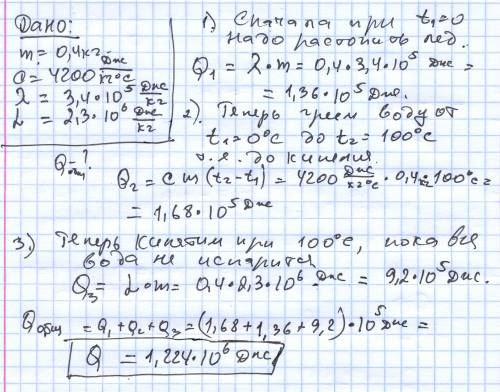 Дано:
m = 0,4кг
c = 4200 Дж/кг°C
λ = 3,4·10⁵ Дж/кг
L = 2,3·10⁶ Дж/кг
Qобщ - ?
1) Сначала при t₁=0
надо растопить лед.
Q₁ = λ·m = 0,4·3,4·10⁵ Дж =
= 1,36·10⁵ Дж.
2). Теперь греем воду от
t₁=0°C до t₂=100°C
т.е. до кипения.
Q₂ = cm(t₂-t₁) = 4200 Дж/кг°C · 0,4кг·100°C =
= 1,68·10⁵ Дж
3.) Теперь кипятим при 100°C, пока вся
вода не испарится
Q₃ = L·m = 0,4·2,3·10⁶ Дж = 9,2·10⁵ Дж.
Qобщ = Q₁+Q₂+Q₃ = (1,68+1,36+9,2)·10⁵ Дж =
Q = 1,224·10⁶ Дж